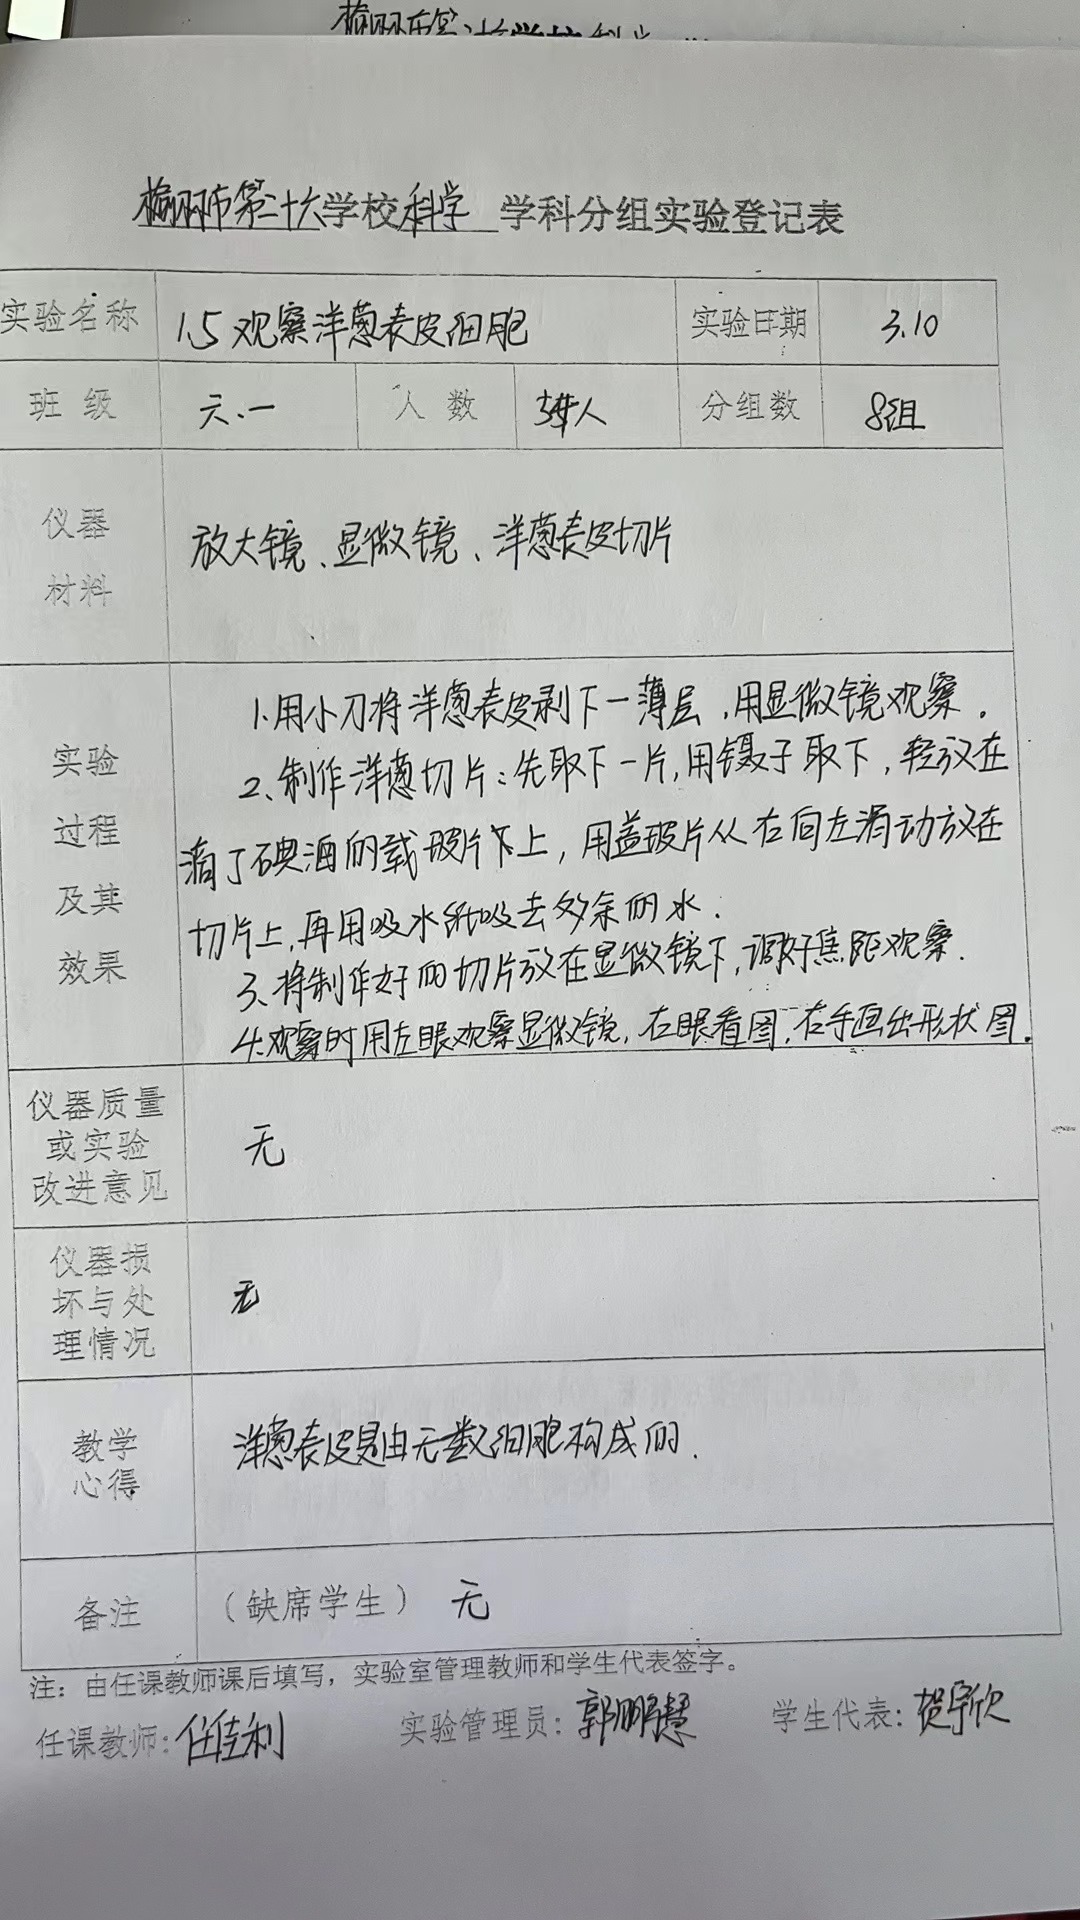 榆林市第二十六学校科学 学科分组实验登记表
实验名称 1.5观察洋葱表皮细胞 实验日期 3.10
班级 六.一 人数 人 分组数 8组
仪器
材料
放大镜、显微镜、洋葱表皮切片
实验
过程
及其
效果
1.用小刀将洋葱表皮剥下一薄层,用显微镜观察.
2、制作洋葱切片:先取下一片,用镊子取下,轻放在
滴了碘酒的载玻片上,用盖玻片从右向左滑动放在
切片上,再用吸水纸吸去多余的水.
3、将制作好的切片放在显微镜下,调好焦距观察.
4.观察时用左眼观察显微镜,右眼看图,右手画出形状图.
仪器质量
或实验
改进意见
无
仪器损
坏与处
理情况
无
教学
心得
洋葱表皮是由无数细胞构成的.
备注 (缺席学生) 无
注:由任课教师课后填写,实验室管理教师和学生代表签字。
任课教师:任佳利 实验管理员:郭鹏慧 学生代表:贺宇欣